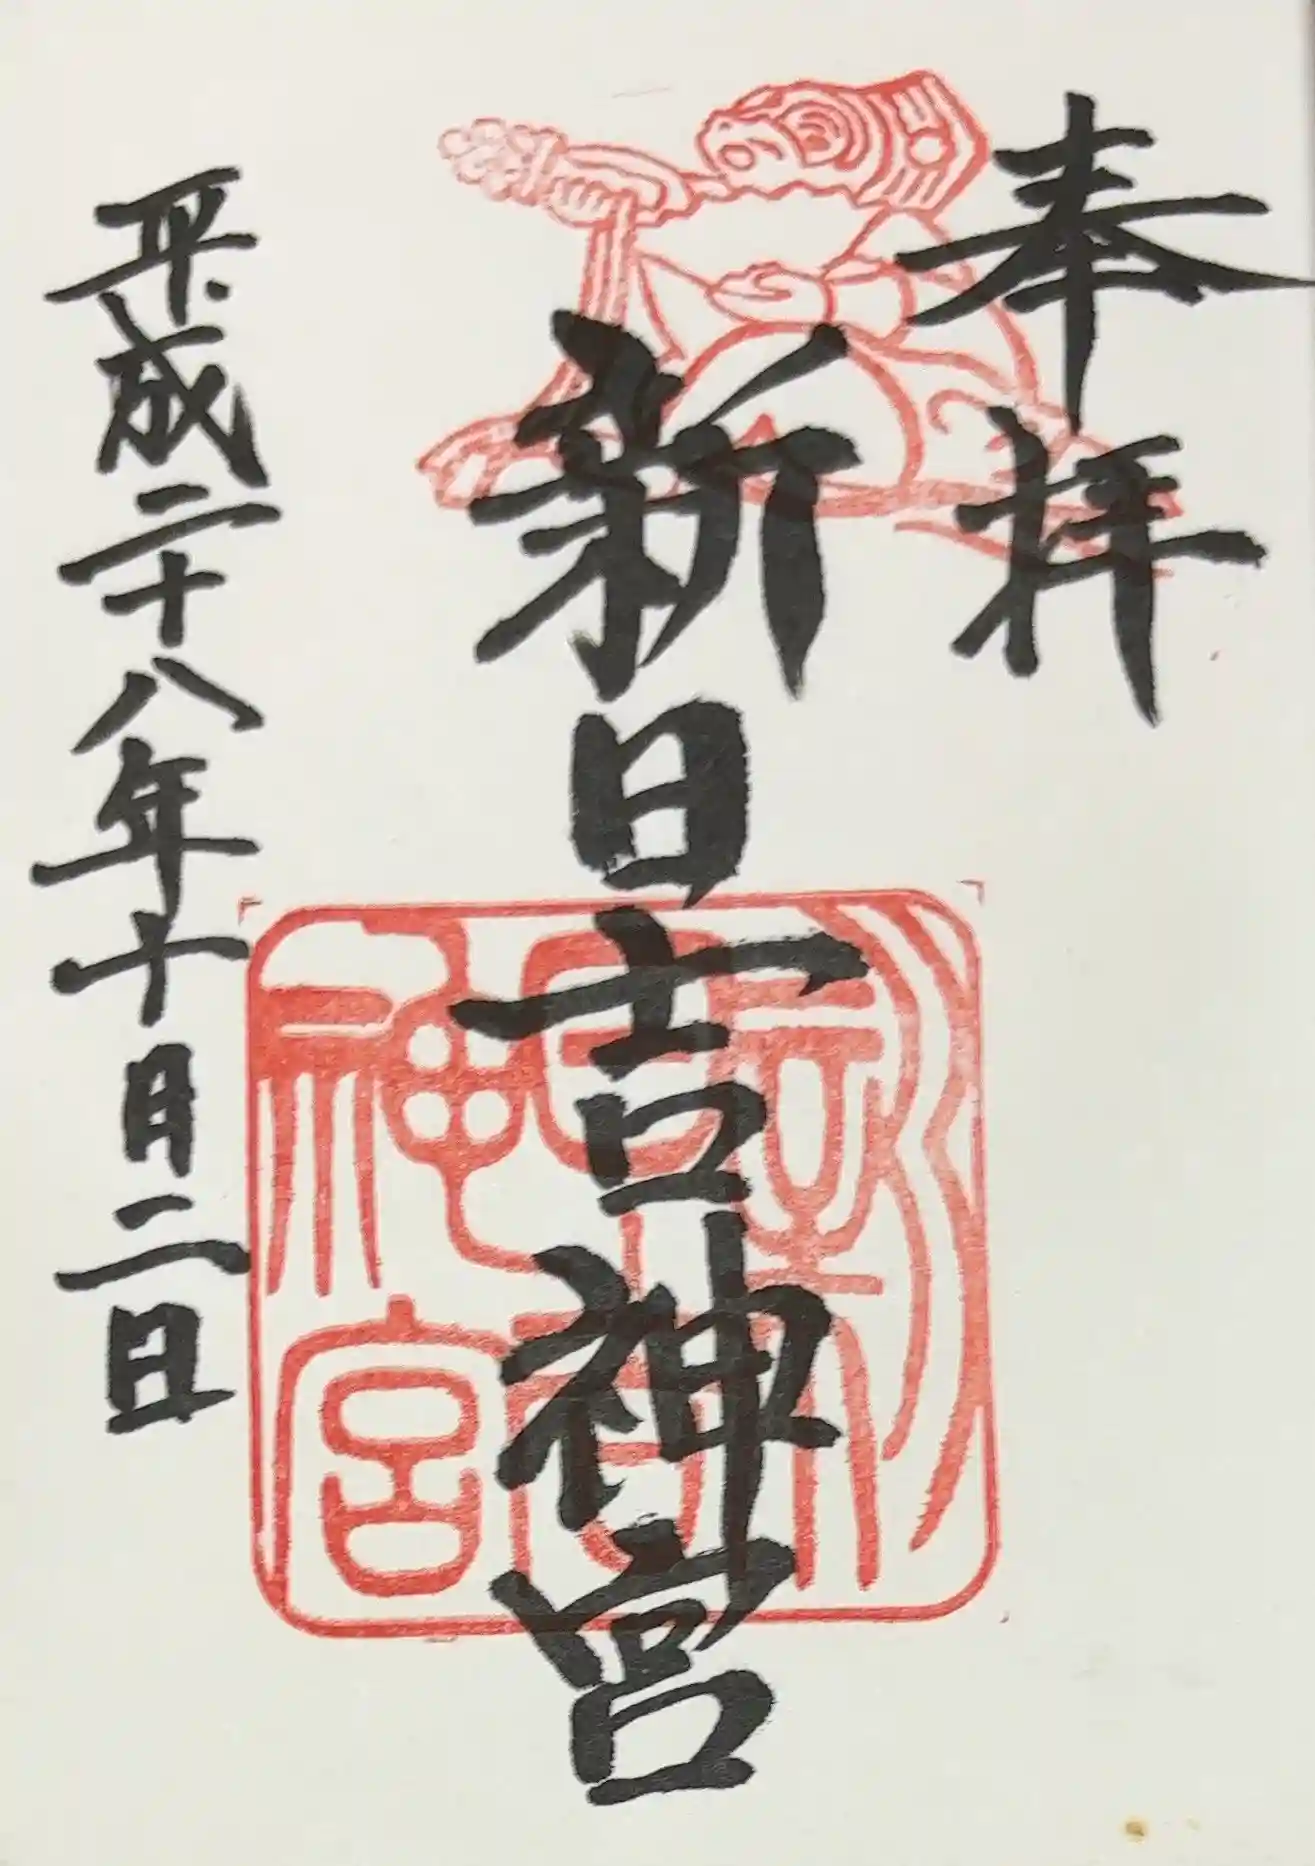 奉拝
新日吉神宮
新日吉神宮
平成二十八年十月二日